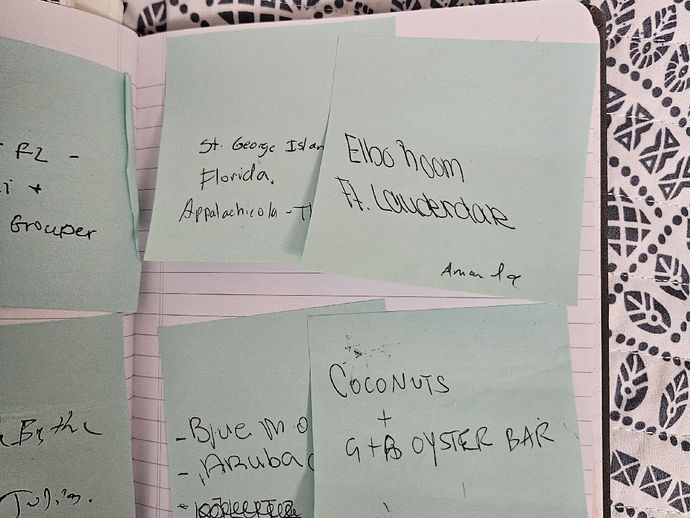 FL -
+
Grouper
St. George Islan
Florida.
Appalachicola - Th
Elbo Room
Ft. Lauderdale
By the
- Blue Mo
- Aruba
Coconuts
+
G+B OYSTER BAR